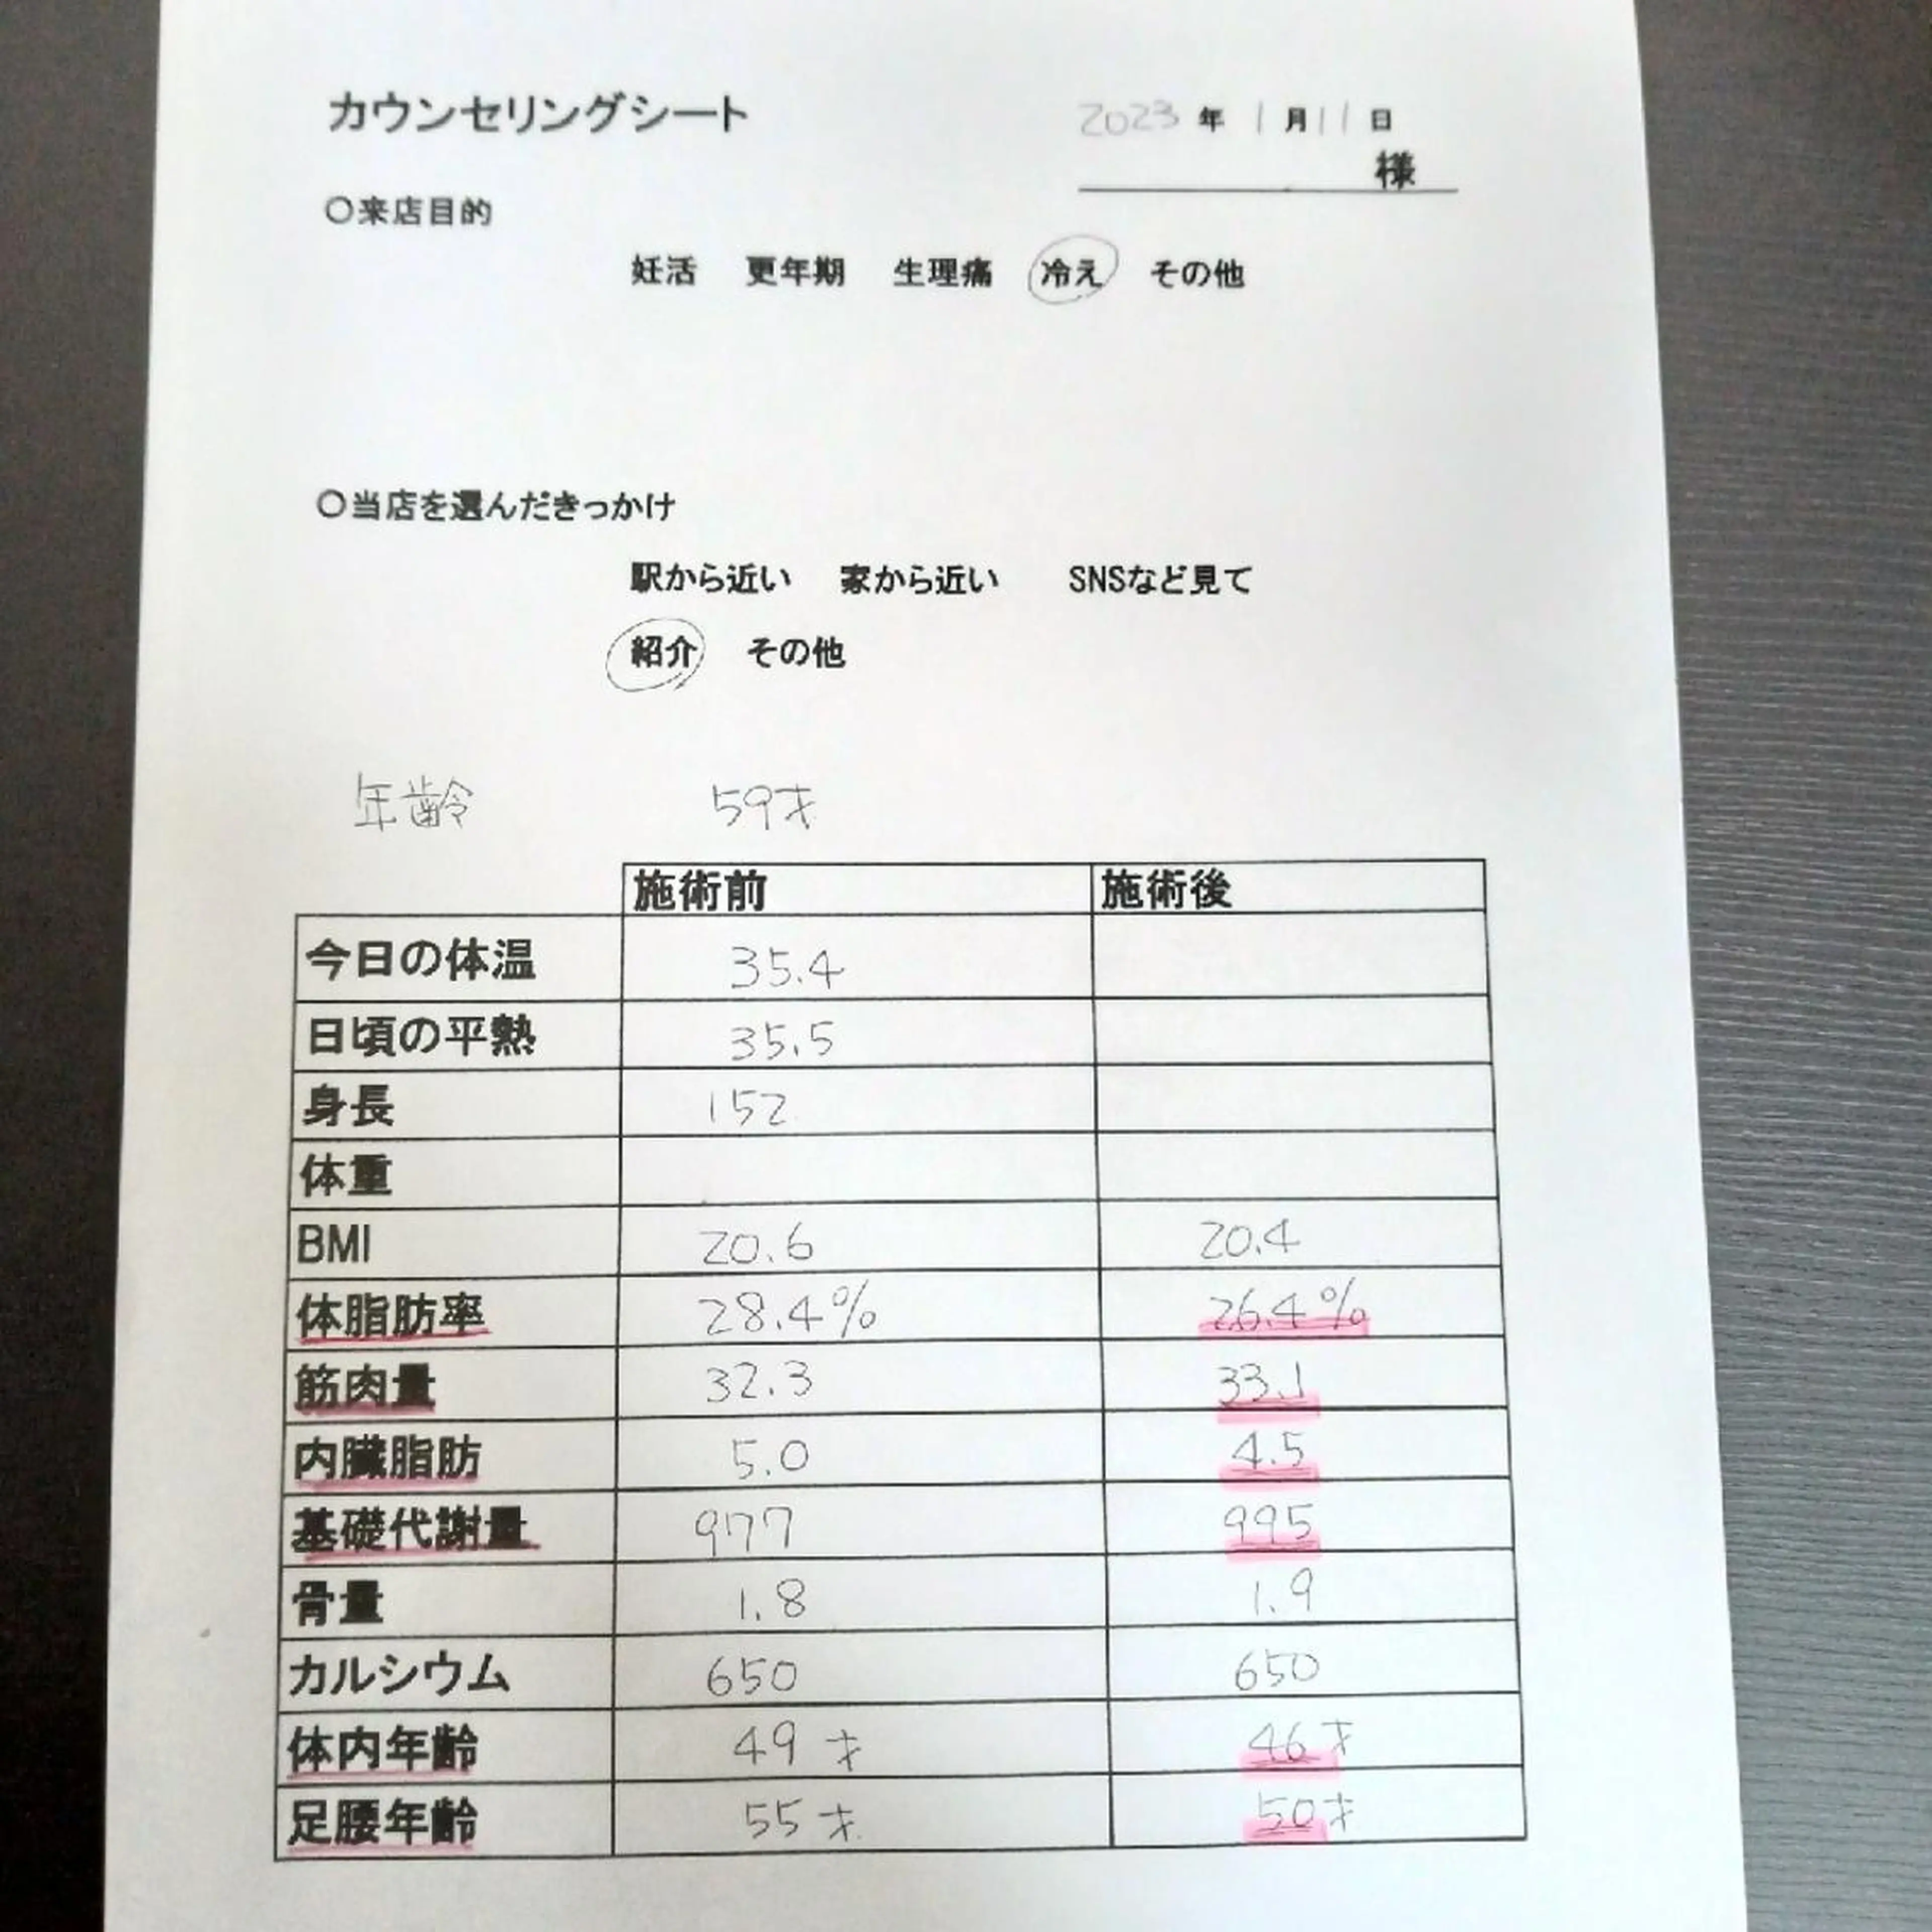 カウンセリングシート 2023年 1月11日
様
〇来店目的
妊活 更年期 生理痛 冷え その他
〇当店を選んだきっかけ
駅から近い 家から近い SNSなど見て
紹介 その他
年齢 59才
施術前 施術後
今日の体温 35.4
日頃の平熱 35.5
身長 152
体重
BMI 20.6 20.4
体脂肪率 28.4% 26.4%
筋肉量 32.3 33.1
内臓脂肪 5.0 4.5
基礎代謝量 977 995
骨量 1.8 1.9
カルシウム 650 650
体内年齢 49才 46才
足腰年齢 55才 50才